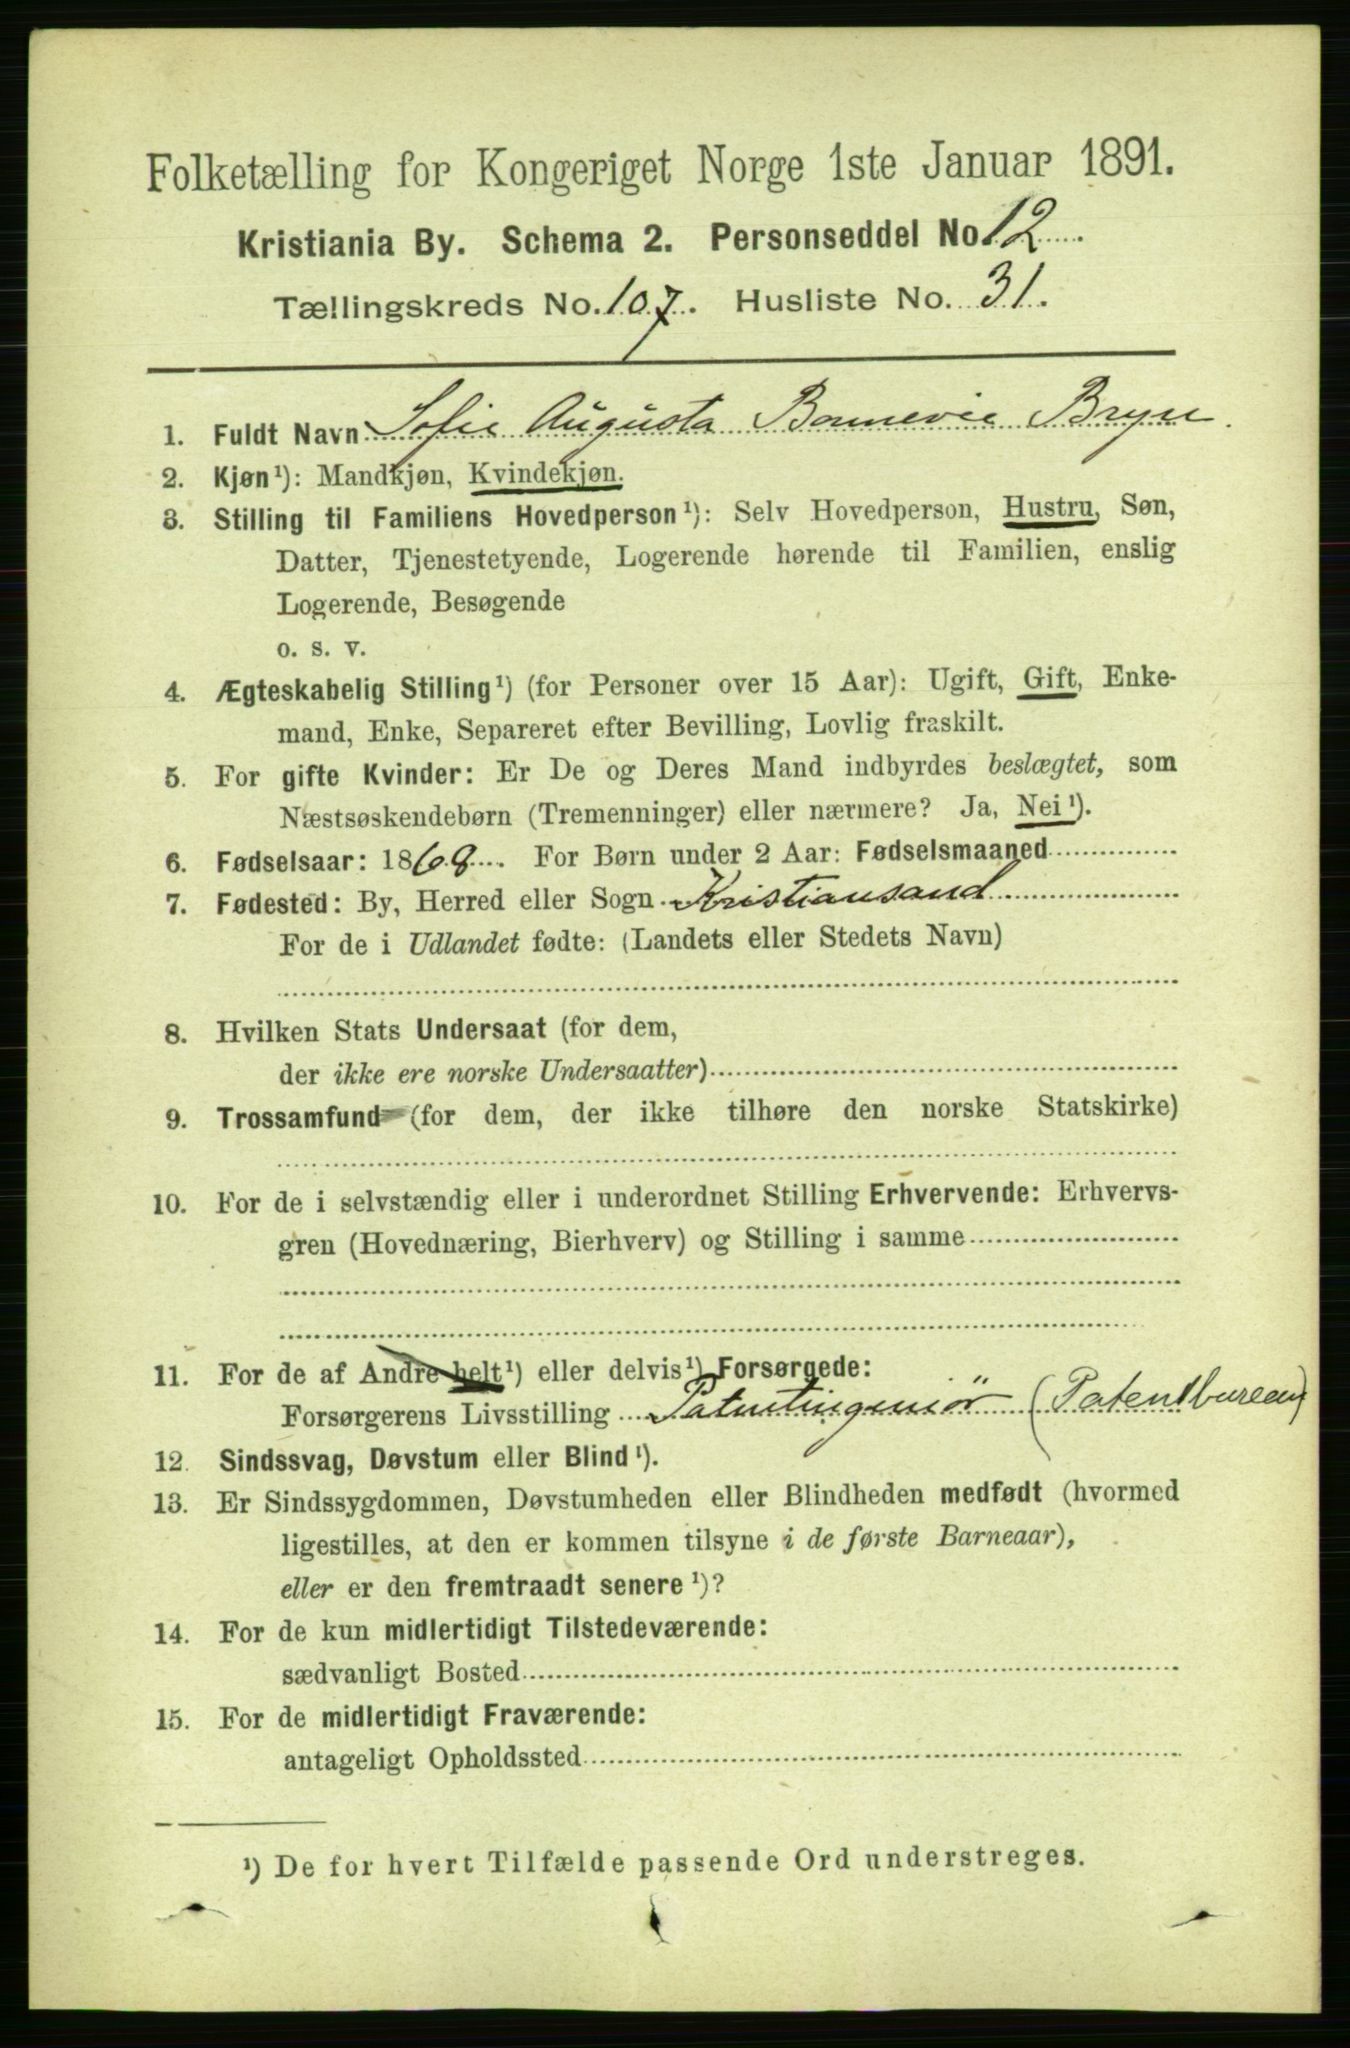 Folketælling for Kongeriget Norge 1ste Januar 1891.
Kristiania By. Schema 2. Personseddel No. 12
Tællingskreds No. 107. Husliste No. 31.
1. Fuldt Navn Sofie Augusta Bonnevie Bryn.
2. Kjøn¹): Mandkjøn, Kvindekjøn.
3. Stilling til Familiens Hovedperson¹): Selv Hovedperson, Hustru, Søn,
Datter, Tjenestetyende, Logerende hørende til Familien, enslig
Logerende, Besøgende
o. s. v.
4. Ægteskabelig Stilling¹) (for Personer over 15 Aar): Ugift, Gift, Enke-
mand, Enke, Separeret efter Bevilling, Lovlig fraskilt.
5. For gifte Kvinder: Er De og Deres Mand indbyrdes beslægtet, som
Næstsøskendebørn (Tremenninger) eller nærmere? Ja, Nei¹).
6. Fødselsaar: 1868. For Børn under 2 Aar: Fødselsmaaned
7. Fødested: By, Herred eller Sogn Kristiansand
For de i Udlandet fødte: (Landets eller Stedets Navn)
8. Hvilken Stats Undersaat (for dem,
der ikke ere norske Undersaatter)
9. Trossamfund (for dem, der ikke tilhøre den norske Statskirke)
10. For de i selvstændig eller i underordnet Stilling Erhvervende: Erhvervs-
gren (Hovednæring, Bierhverv) og Stilling i samme
11. For de af Andre helt¹) eller delvis¹) Forsørgede:
Forsørgerens Livsstilling Patentingeniør (Patentbureau)
12. Sindssvag, Døvstum eller Blind¹).
13. Er Sindssygdommen, Døvstumheden eller Blindheden medfødt (hvormed
ligestilles, at den er kommen tilsyne i de første Barneaar),
eller er den fremtraadt senere¹)?
14. For de kun midlertidigt Tilstedeværende:
sædvanligt Bosted
15. For de midlertidigt Fraværende:
antageligt Opholdssted
¹) De for hvert Tilfælde passende Ord understreges.